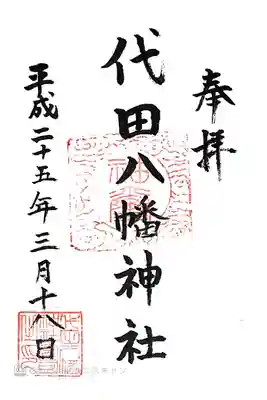 奉拝
代田八幡神社
平成二十五年三月十八日